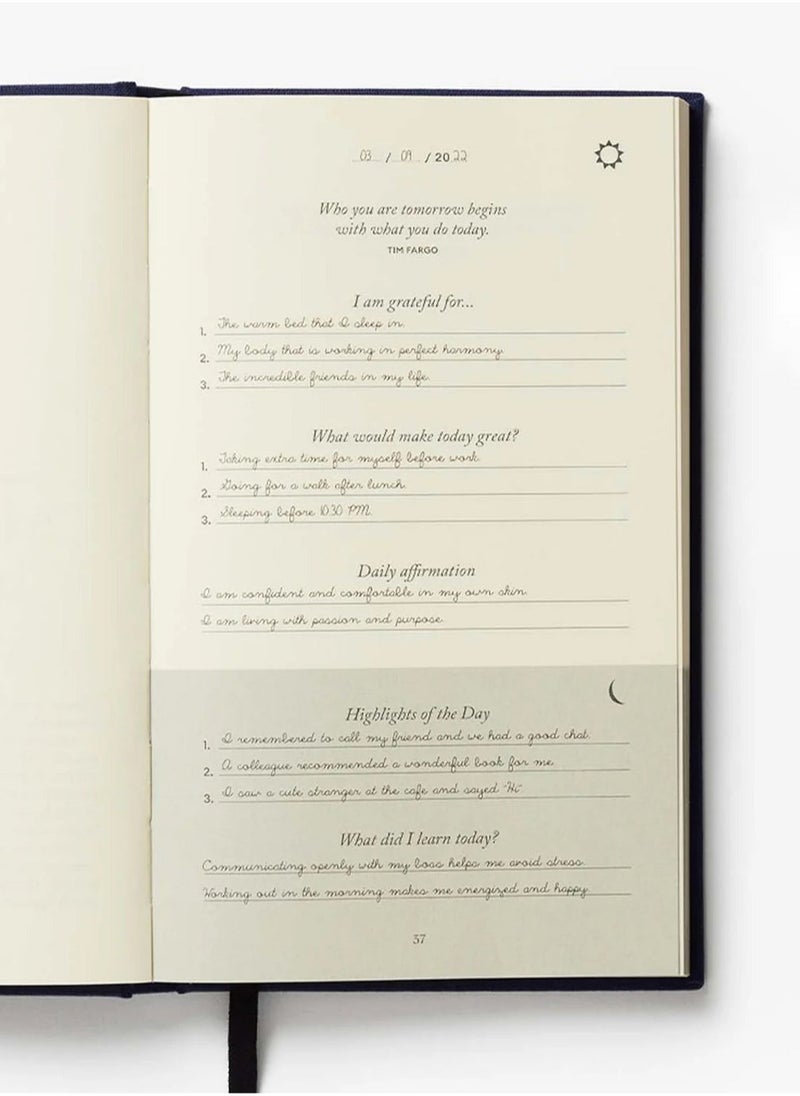 03 / 09 / 2022
Who you are tomorrow begins
with what you do today.
TIM FARGO
I am grateful for...
1. The warm bed that I sleep in.
2. My body that is working in perfect harmony.
3. The incredible friends in my life.
What would make today great?
1. Taking extra time for myself before work.
2. Going for a walk after lunch.
3. Sleeping before 10:30 PM.
Daily affirmation
I am confident and comfortable in my own skin.
I am living with passion and purpose.
Highlights of the Day
1. I remembered to call my friend and we had a good chat.
2. A colleague recommended a wonderful book for me.
3. I saw a cute stranger at the cafe and sayed "Hi"
What did I learn today?
Communicating openly with my boss helps me avoid stress.
Working out in the morning makes me energized and happy.
37